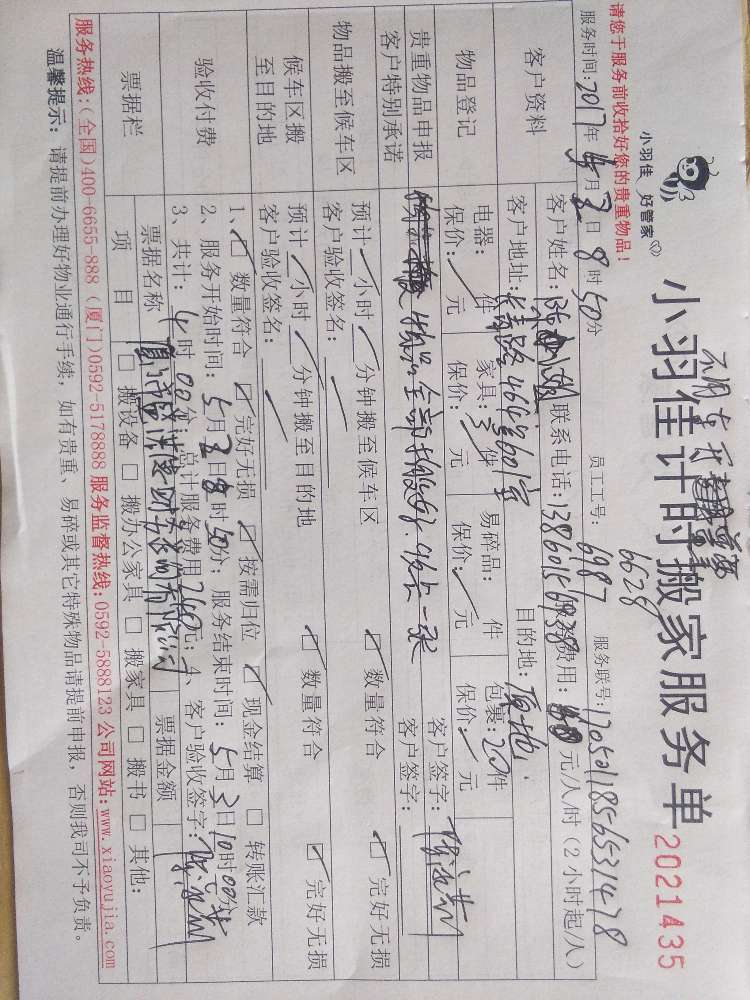 小羽佳 好管家
小羽佳计时搬家服务单 2021435
请您于服务前收拾好您的贵重物品！
6628
服务时间：2017年 月 日 8时50分 员工工号：6987 服务联号：1705011856531478
客户资料
客户姓名： 联系电话：13860156938 费用： 元/人/时（2小时起/人）
客户地址： 路466号601室 目的地：
物品登记
电器： 件 家具： 件 易碎品： 件 包裹：20件
保价： 元 保价： 元 保价： 元 保价： 元
贵重物品申报 客户签字：
客户特别承诺 物品全部 客户签字：
物品搬至候车区
预计 小时 分钟搬至候车区 数量符合 完好无损
客户验收签名：
候车区搬至目的地
预计 小时 分钟搬至目的地 数量符合 完好无损
客户验收签名：
验收付费
1、 数量符合 完好无损 按需归位 现金结算 转账汇款
2、服务开始时间：5月 日8时50分；服务结束时间：5月 日10时00分
3、共计：4时00分，总计服务费用240元；4、客户验收签字：
票据栏
票据名称 厦门 有限公司 票据金额
项目 搬设备 搬办公家具 搬家具 搬书 其他：
服务热线：（全国）400-6655-888（厦门）0592-5178888 服务监督热线：0592-5888123 公司网站：www.xiaoyujia.com
温馨提示：请提前办理好物业通行手续，如有贵重、易碎或其它特殊物品请提前申报，否则我司不予负责。